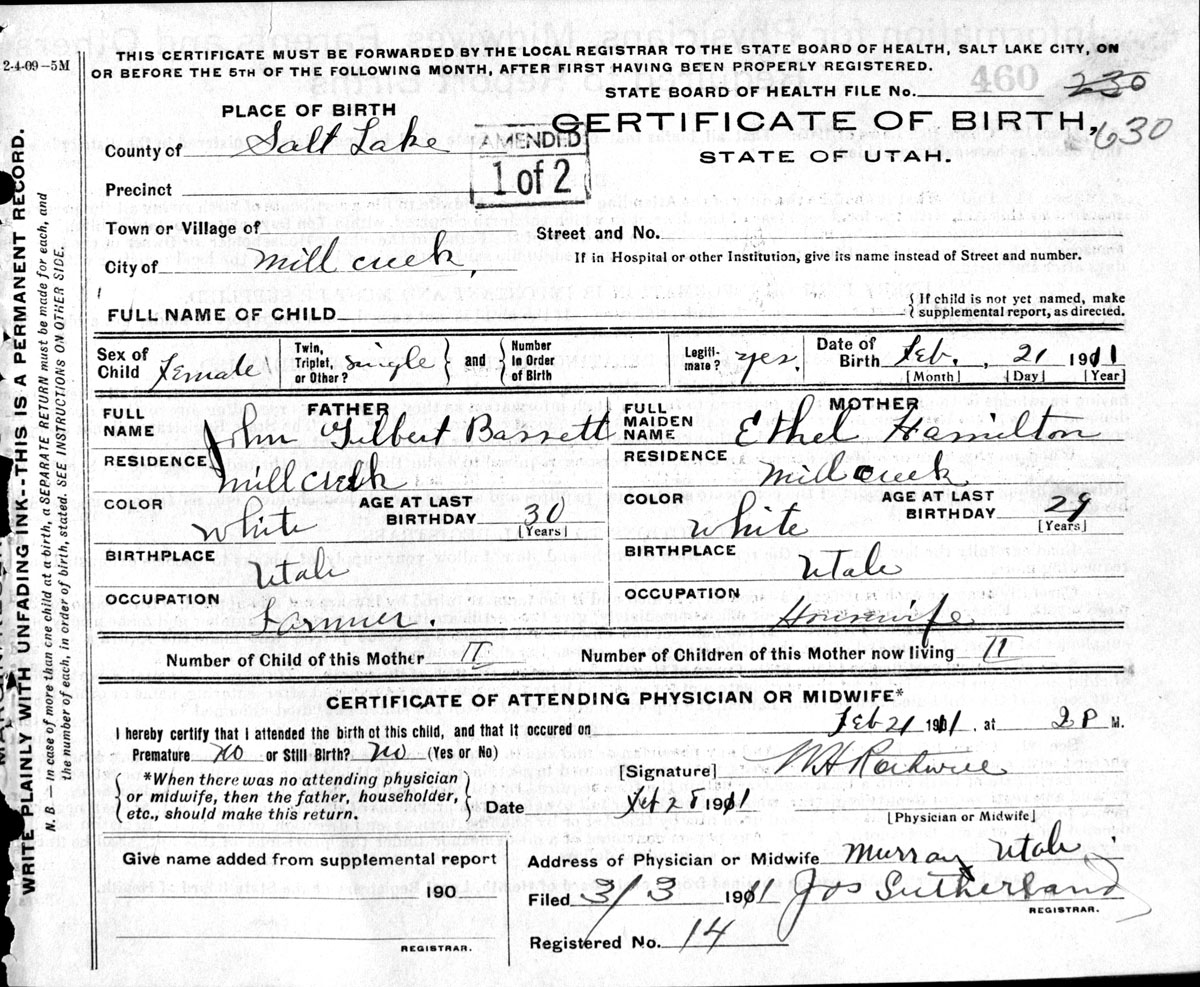 2-4-09–5M
THIS CERTIFICATE MUST BE FORWARDED BY THE LOCAL REGISTRAR TO THE STATE BOARD OF HEALTH, SALT LAKE CITY, ON
OR BEFORE THE 5TH OF THE FOLLOWING MONTH, AFTER FIRST HAVING BEEN PROPERLY REGISTERED.
460
STATE BOARD OF HEALTH FILE No. 230
630
PLACE OF BIRTH
CERTIFICATE OF BIRTH,
STATE OF UTAH.
AMENDED
1 of 2
County of Salt Lake
Precinct
Town or Village of
Street and No.
City of Mill creek,
If in Hospital or other Institution, give its name instead of Street and number.
FULL NAME OF CHILD
{ If child is not yet named, make
supplemental report, as directed.
Sex of Child Female
Twin, Triplet, or Other? Single } and { Number in Order of Birth
Legitimate? yes.
Date of Birth Feb. 21 1911
[Month] [Day] [Year]
FATHER
FULL NAME John Gilbert Bassett
RESIDENCE Mill creek
COLOR White
AGE AT LAST BIRTHDAY 30
[Years]
BIRTHPLACE
Utah
OCCUPATION
Farmer.
MOTHER
FULL MAIDEN NAME Ethel Hamilton
RESIDENCE
Mill creek
COLOR White
AGE AT LAST BIRTHDAY 29
[Years]
BIRTHPLACE
Utah
OCCUPATION
Housewife
Number of Child of this Mother II Number of Children of this Mother now living II
CERTIFICATE OF ATTENDING PHYSICIAN OR MIDWIFE*
I hereby certify that I attended the birth of this child, and that it occured on Feb 21 1911. at 2 P M.
Premature No or Still Birth? No (Yes or No)
{ *When there was no attending physician
or midwife, then the father, householder,
etc., should make this return. }
[Signature] W H Rockwell
Date Feb 28 1911
[Physician or Midwife]
Give name added from supplemental report
190
REGISTRAR.
Address of Physician or Midwife Murray Utah
Filed 3/3 1911 Jos Sutherland
REGISTRAR.
Registered No. 14
WRITE PLAINLY WITH UNFADING INK--THIS IS A PERMANENT RECORD.
N. B.—In case of more than one child at a birth, a SEPARATE RETURN must be made for each, and
the number of each, in order of birth, stated. SEE INSTRUCTIONS ON OTHER SIDE.